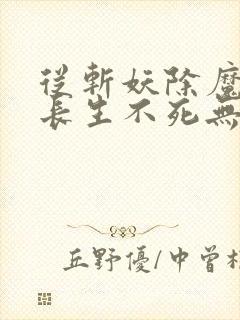 從斬妖除魔
長生不死無
丘野優/中曾根